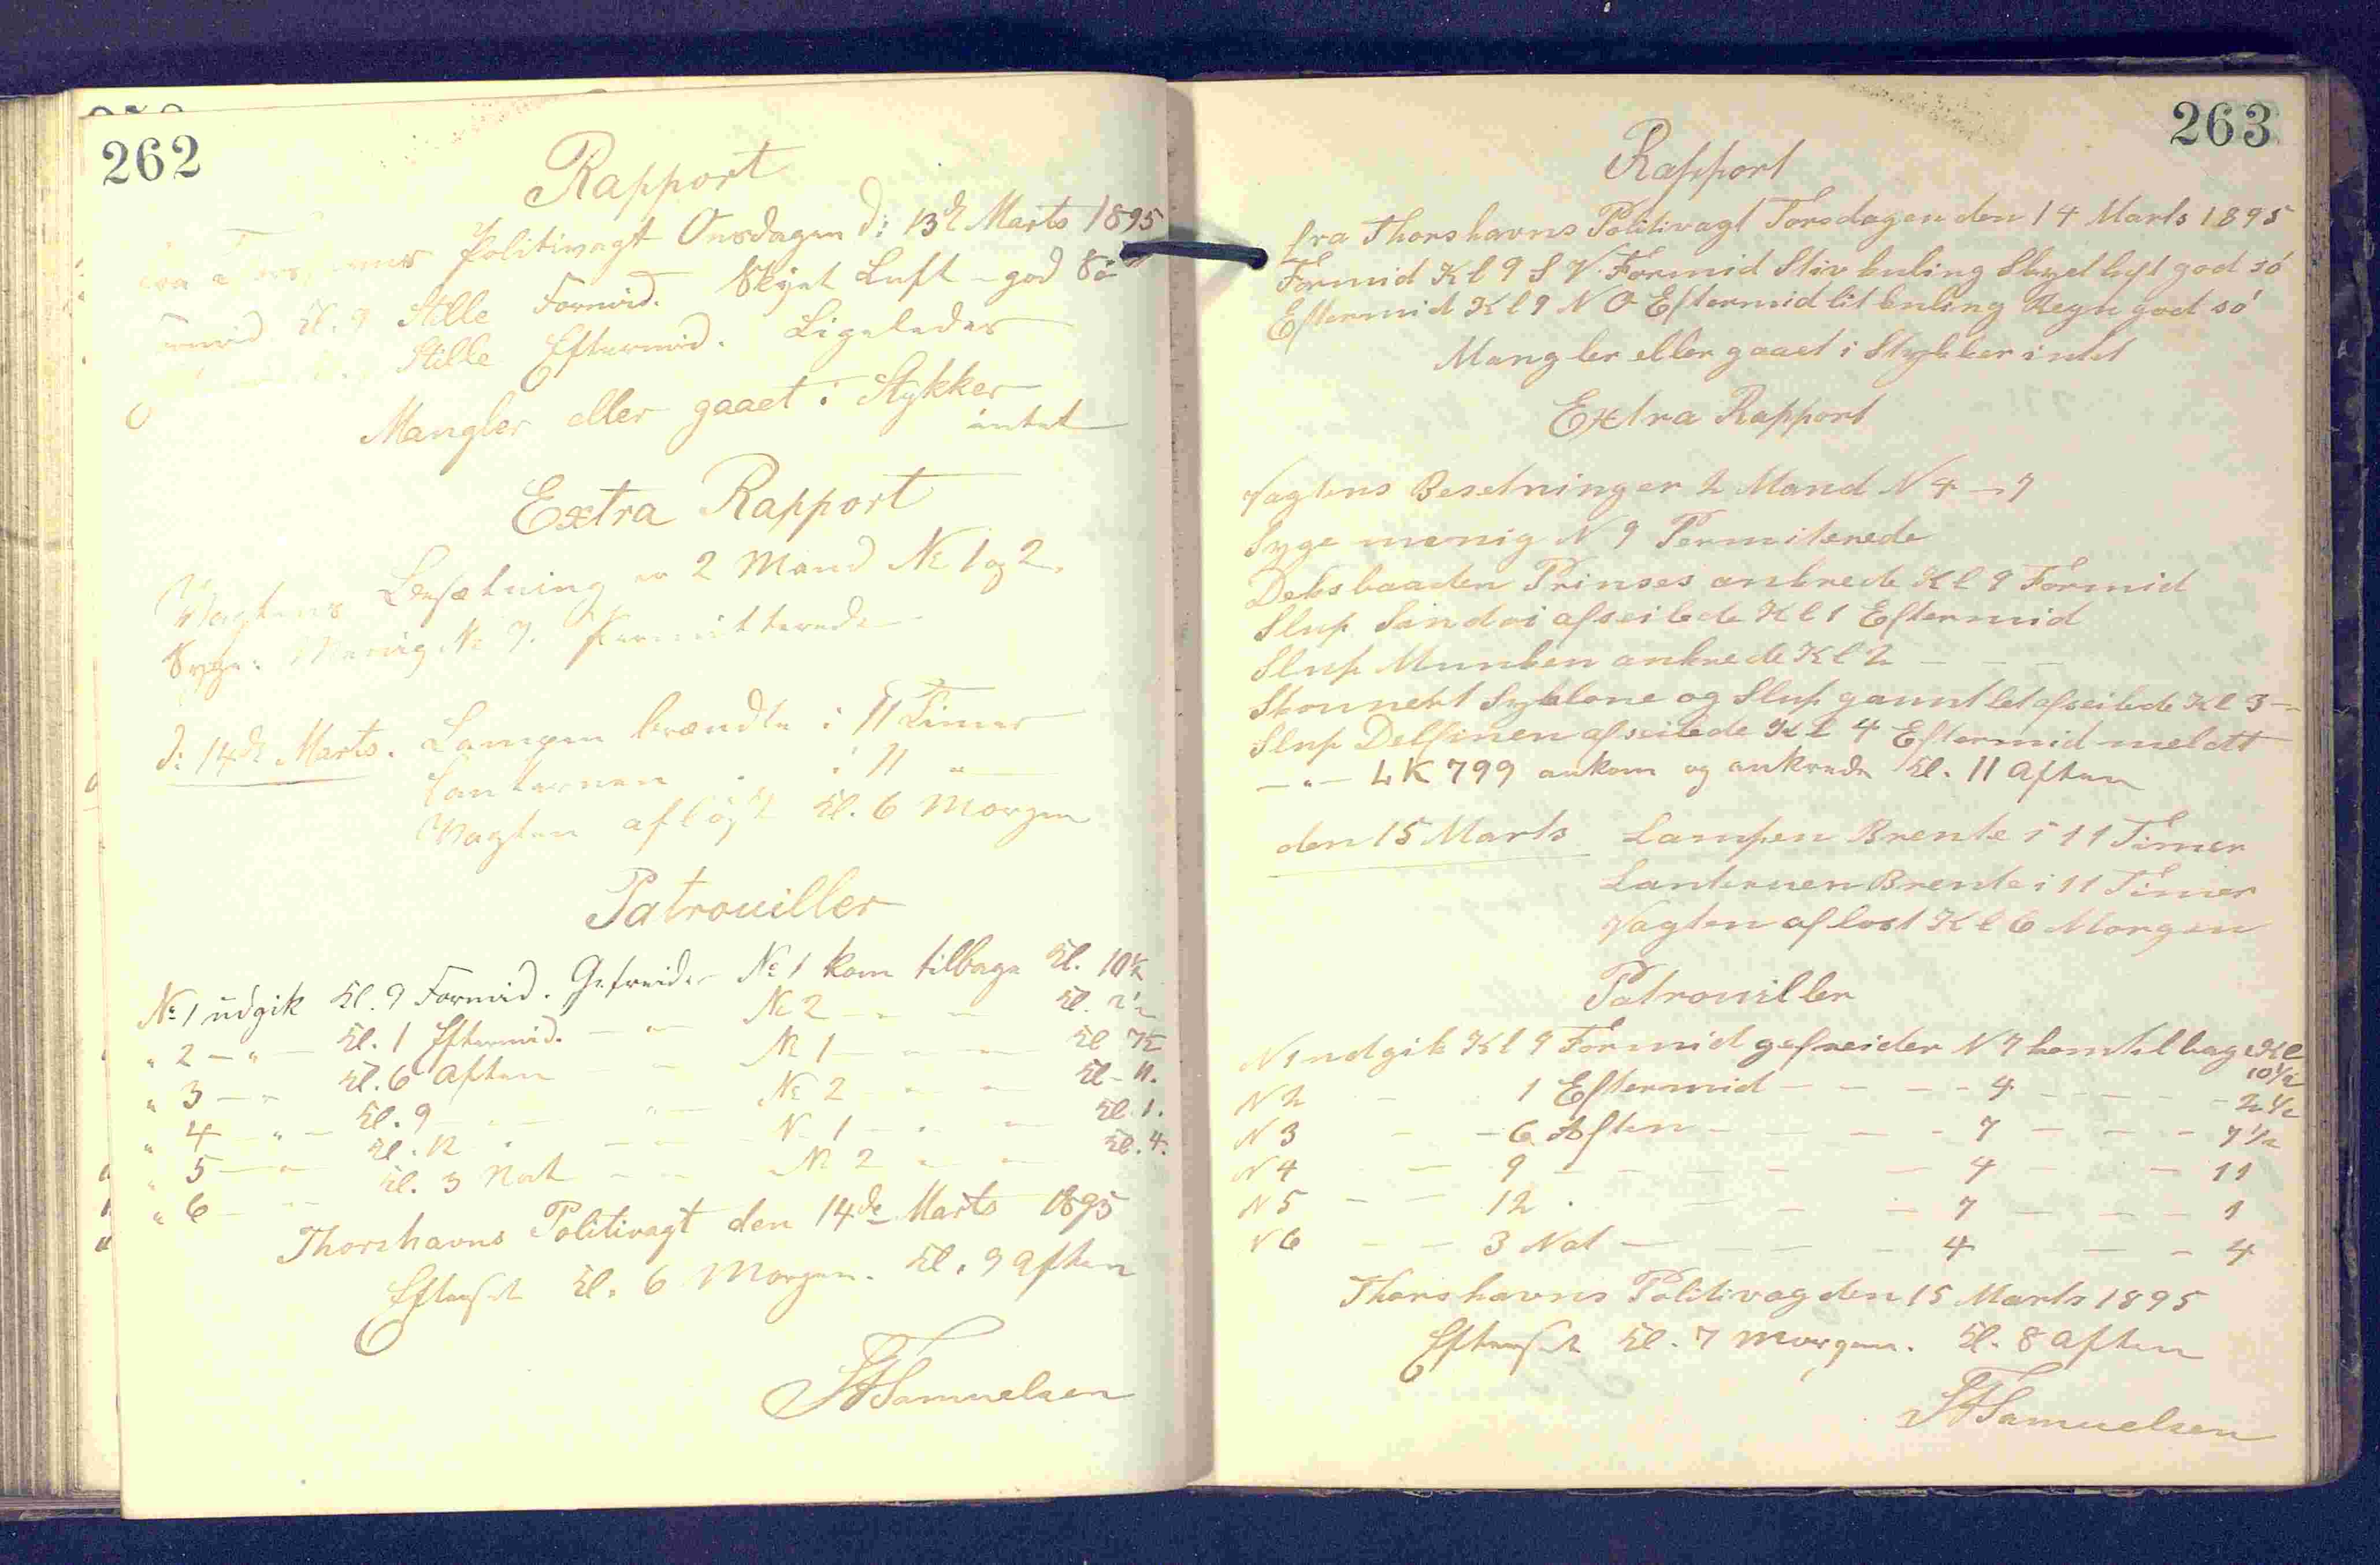 262
Rapport
fra Thorshavns Politivagt Onsdagen d: 13de Marts 1895
Formid Kl. 9 Stille Formid. Skyet Luft - god Sö
Stille Eftermid. Ligeledes
Mangler eller gaaet i Stykker
intet
Extra Rapport
Vagtens Besætning er 2 Mand No 1 og 2.
Syge: Menig No 7. Permitterede
d: 14de Marts. Lampen brændte i 11 Timer
Lanternen " i 11 "
Vagten aflöst Kl. 6 Morgen
Patrouiller
No 1 udgik Kl. 9 Formid. Gefreider No 1 kom tilbage Kl. 10½
" 2 - " - Kl. 1 Eftermid. - " - No 2 - " - Kl. 2½
" 3 - " Kl. 6 Aften - " - No 1 - " - Kl 7½
" 4 - " - Kl. 9 - " - No 2 - " - Kl - 11.
" 5 - " - Kl. 12 " - " - No 1 - " - Kl. 1.
" 6 - " - Kl. 3 Nat - " - No 2 - " - Kl. 4.
Thorshavns Politivagt den 14de Marts 1895
Efterset Kl. 6 Morgen. Kl. 9 Aften
Samuelsen
263
Rapport
fra Thorshavns Politivagt Torsdagen den 14 Marts 1895
Formid Kl 9 S V Formid Stiv kuling Skyet luft god só
Eftermid Kl 9 N O Eftermid lit kuling Regn god só
Mangler eller gaaet i Stykker intet
Extra Rapport
Vagtens Besetning er 2 Mand N 4 - 7
Syge menig N 9 Permiterede
Deksbaaden Prinses ankrede Kl 9 Formid
Slup Sandoi afseilede Kl 1 Eftermid
Slup Munken ankrede Kl 2 - - -
Skonnert Syklone og Slup gauntlet afseilede Kl 3 -
Slup Delfinen afseilede Kl 4 Eftermid meldt
- " - LK 799 ankom og ankrede Kl. 11 Aften
den 15 Marts Lampen Brente i 11 Timer
Lanternen Brente i 11 Timer
Vagten aflost Kl 6 Morgen
Patrouiller
N 1 udgik Kl 9 Formid gefreider N 7 kom tilbage Kl
10½
N 2 - 1 Eftermid - - - - 4 - - - - 2½
N 3 - - 6 Aften - - - - 7 - - - 7½
N 4 - - 9 - - - - 4 - - 11
N 5 - - 12 . - - - 7 - - - 1
N 6 - - 3 Nat - - - - 4 - - 4
Thorshavns Politivag den 15 Marts 1895
Efterset Kl. 7 Morgen. Kl. 8 Aften
Samuelsen